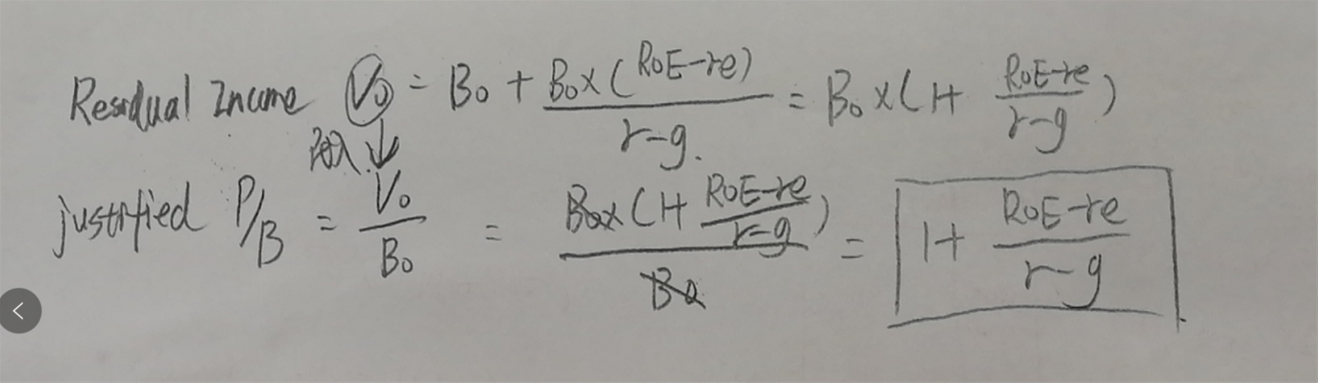 Residual Income V₀ = B₀ + B₀×(ROE-re)/(r-g) = B₀×(1+ (ROE-re)/(r-g))
代入↓
justified P/B = V₀/B₀ = B₀×(1+ (ROE-re)/(r-g))/B₀ = 1+ (ROE-re)/(r-g)